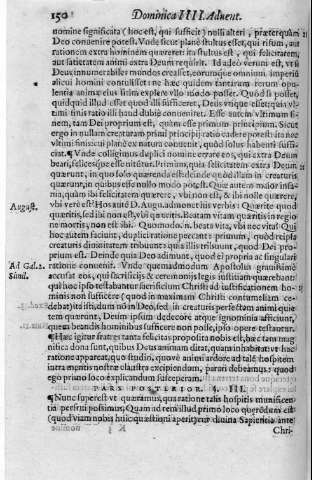 150 Dominica IIII. Aduent.
nomine significata (hoc est, qui sufficit) nulli alteri, præterquàm
Deo conuenire potest. Vnde sicut planè stultus esset, qui risum, aut
rationem extra hominem quæreret: ita stultus est, qui felicitatem,
aut satietatem animi extra Deum requirit. Id adeò verum est, vt si
Deus innumerabiles mundos creasset, eorumque omnium imperiū
alicui homini contulisset: ne hæc quidem tantarum rerum opu-
lentia animæ eius sitim explere vllo modo posset. Quòd si posset,
quidquid illud esset quod illi sufficeret, Deus vtique esset: quia vl-
timi finis ratio illi haud dubiè conueniret. Esse autem vltimum fi-
nem, tam Dei proprium est, quàm esse primum principium. Sicut
ergo in nullam creaturam primi principij ratio cadere potest: ita nec
vltimi finis: vt planè ex natura conuenit, quòd solus habenti suffi-
ciat.
¶ Vnde colligimus duplici nomine errare eos, qui extra Deum
beari, felicesque esse nituntur. Primùm, quia felicitatem extra Deum
quærunt, in quo solo quærenda est: deinde quòd illam in creaturis
quærunt, in quibus esse nullo modo potest. Quæ autem maior insa-
nia, quàm ibi felicitatem quærere, vbi non est, & ibi nolle quærere,
vbi verè est? Hos autē D. Augu. admonet his verbis: Quærite quod
August.
quæritis, sed ibi non est, vbi quæritis. Beatam vitam quæritis in regio
ne mortis, non est ibi. Quomodo. n. beata vita, vbi nec vita? Qui
hoc autem faciunt, dupliciter peccant: primum, quòd rei psi
creaturis diuinitatem tribuunt: quia illis tribuunt, quod Dei pro-
prium est. Deinde quia Deo adimunt, quod ei propria ac singulari
ratione conuenit. Vnde quemadmodum Apostolus grauissimè
Ad Gal. 2.
accusat eos, qui sacrificijs & ceremonijs legis iustitiam quærebant:
Simil.
quòd hoc ipso testabantur sacrificium Christi ad iustificationem ho
minis non sufficere (quod in maximam Christi contumeliam ce-
debat) ita isti, dum nō in Deo, sed in creaturis perfectam animi quie
tem quærunt, Deum ipsum dedecore atque ignominia afficiunt,
quem beandis hominibus sufficere non posse, ipso opere testantur.
¶ Hæc igitur fratres tanta felicitas proposita nobis est, hæc tam mag
nifica dona sunt, quibus Deus animam ditat, quam inhabitat: vt hac
ratione appareat, quo studio, quove animi ardore ad talē hospitem
intra mentis nostræ claustra excipiendum, parati debeamus: quod
ego primo loco explicandum susceperam.
PARS POSTERIOR. §. III.
¶ Nunc superest vt quæramus, qua ratione talis hospitis munificen
tia perfrui possimus. Quam ad rem illud primo loco quærendum est
(quod viam nobis huic quæstioni aperit) cur diuina Sapientia ante
Chri-